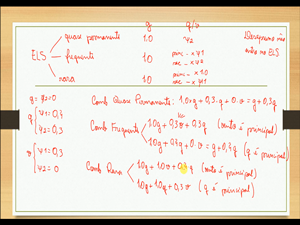 g q/v
ELS
quase permanente 1.0 ψ2
frequente 1.0 princ - x ψ1
sec - x ψ2
rara 1.0 princ - x 1.0
sec - x ψ1
Desaprumo não
entra no ELS
g = γg=0
q { ψ1=0,4
ψ2=0,3
v { ψ1=0,3
ψ2=0
Comb Quase Permanente: 1.0g+0,3.q+0.v = g+0,3q
Comb Frequente
1.0g+0,3v+0,3q (vento é principal)
1.0g+0,4q+0.v = g+0,4q (q é principal)
Comb Rara
1.0g+1.0v+0,4q (vento é principal)
1.0g+1.0q+0,3v (q é principal)